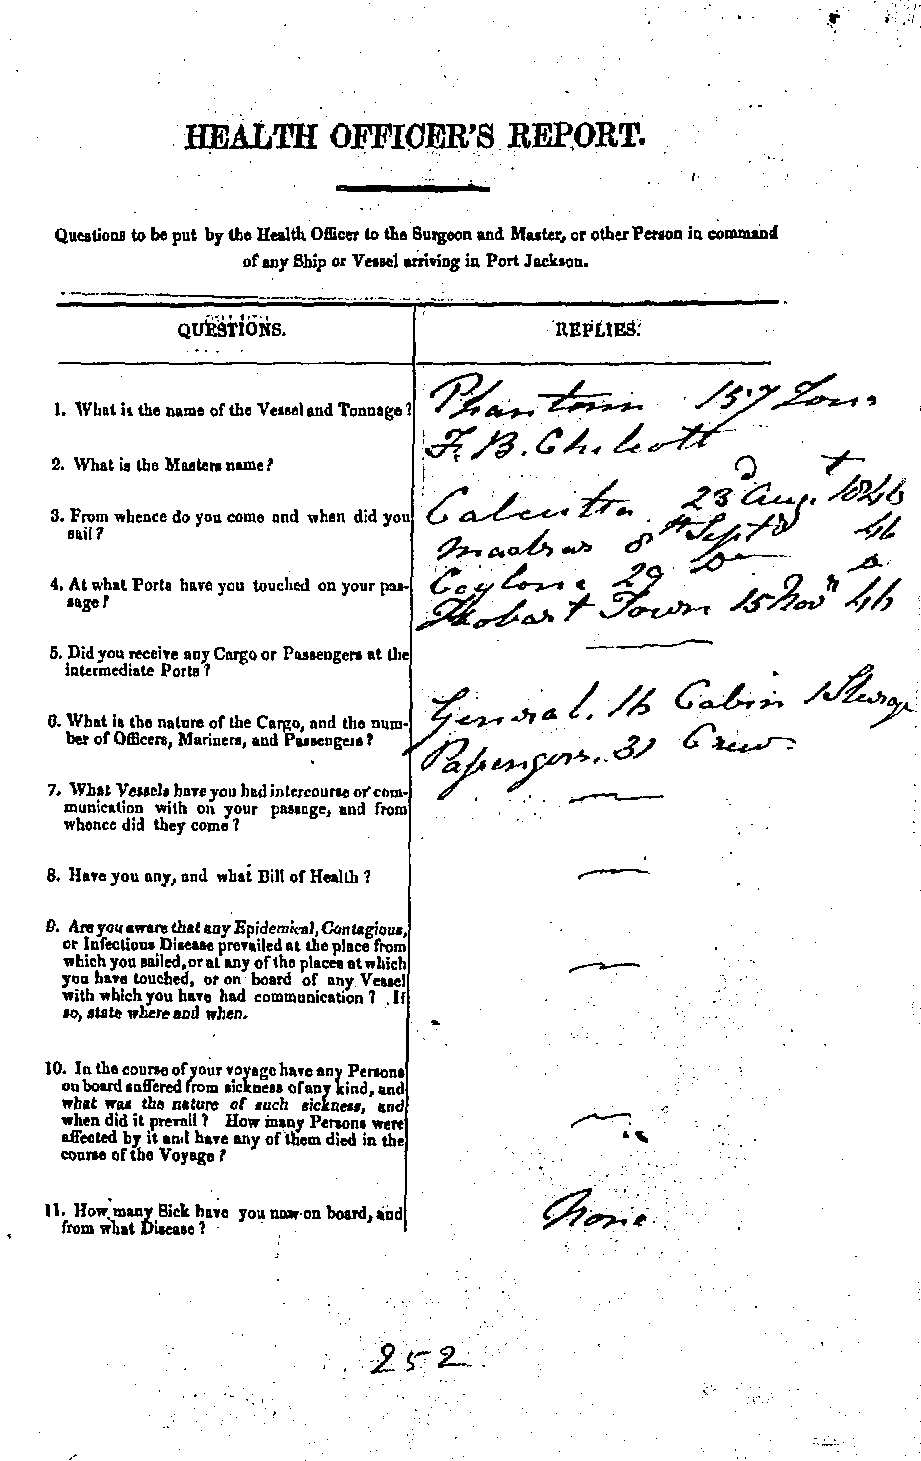 HEALTH OFFICER'S REPORT.
Questions to be put by the Health Officer to the Surgeon and Master, or other Person in command
of any Ship or Vessel arriving in Port Jackson.
QUESTIONS.
REPLIES.
1. What is the name of the Vessel and Tonnage?
Phantom 157 Tons
2. What is the Masters name?
F. B. Chilcott
3. From whence do you come and when did you
sail?
Calcutta 23d Augt. 1846
Madras 8th Septr 46
4. At what Ports have you touched on your pas-
sage?
Ceylon 29 Do Do
Hobart Town 15 Novr 46
5. Did you receive any Cargo or Passengers at the
intermediate Ports?
6. What is the nature of the Cargo, and the num-
ber of Officers, Mariners, and Passengers?
General. 16 Cabin 1 Steerage
Passengers. 31 Crew.
7. What Vessels have you had intercourse or com-
munication with on your passage, and from
whence did they come?
8. Have you any, and what Bill of Health?
9. Are you aware that any Epidemical, Contagious,
or Infectious Disease prevailed at the place from
which you sailed, or at any of the places at which
you have touched, or on board of any Vessel
with which you have had communication? If
so, state where and when.
10. In the course of your voyage have any Persons
on board suffered from sickness of any kind, and
what was the nature of such sickness, and
when did it prevail? How many Persons were
affected by it and have any of them died in the
course of the Voyage?
11. How many Sick have you now on board, and
from what Disease?
None
252